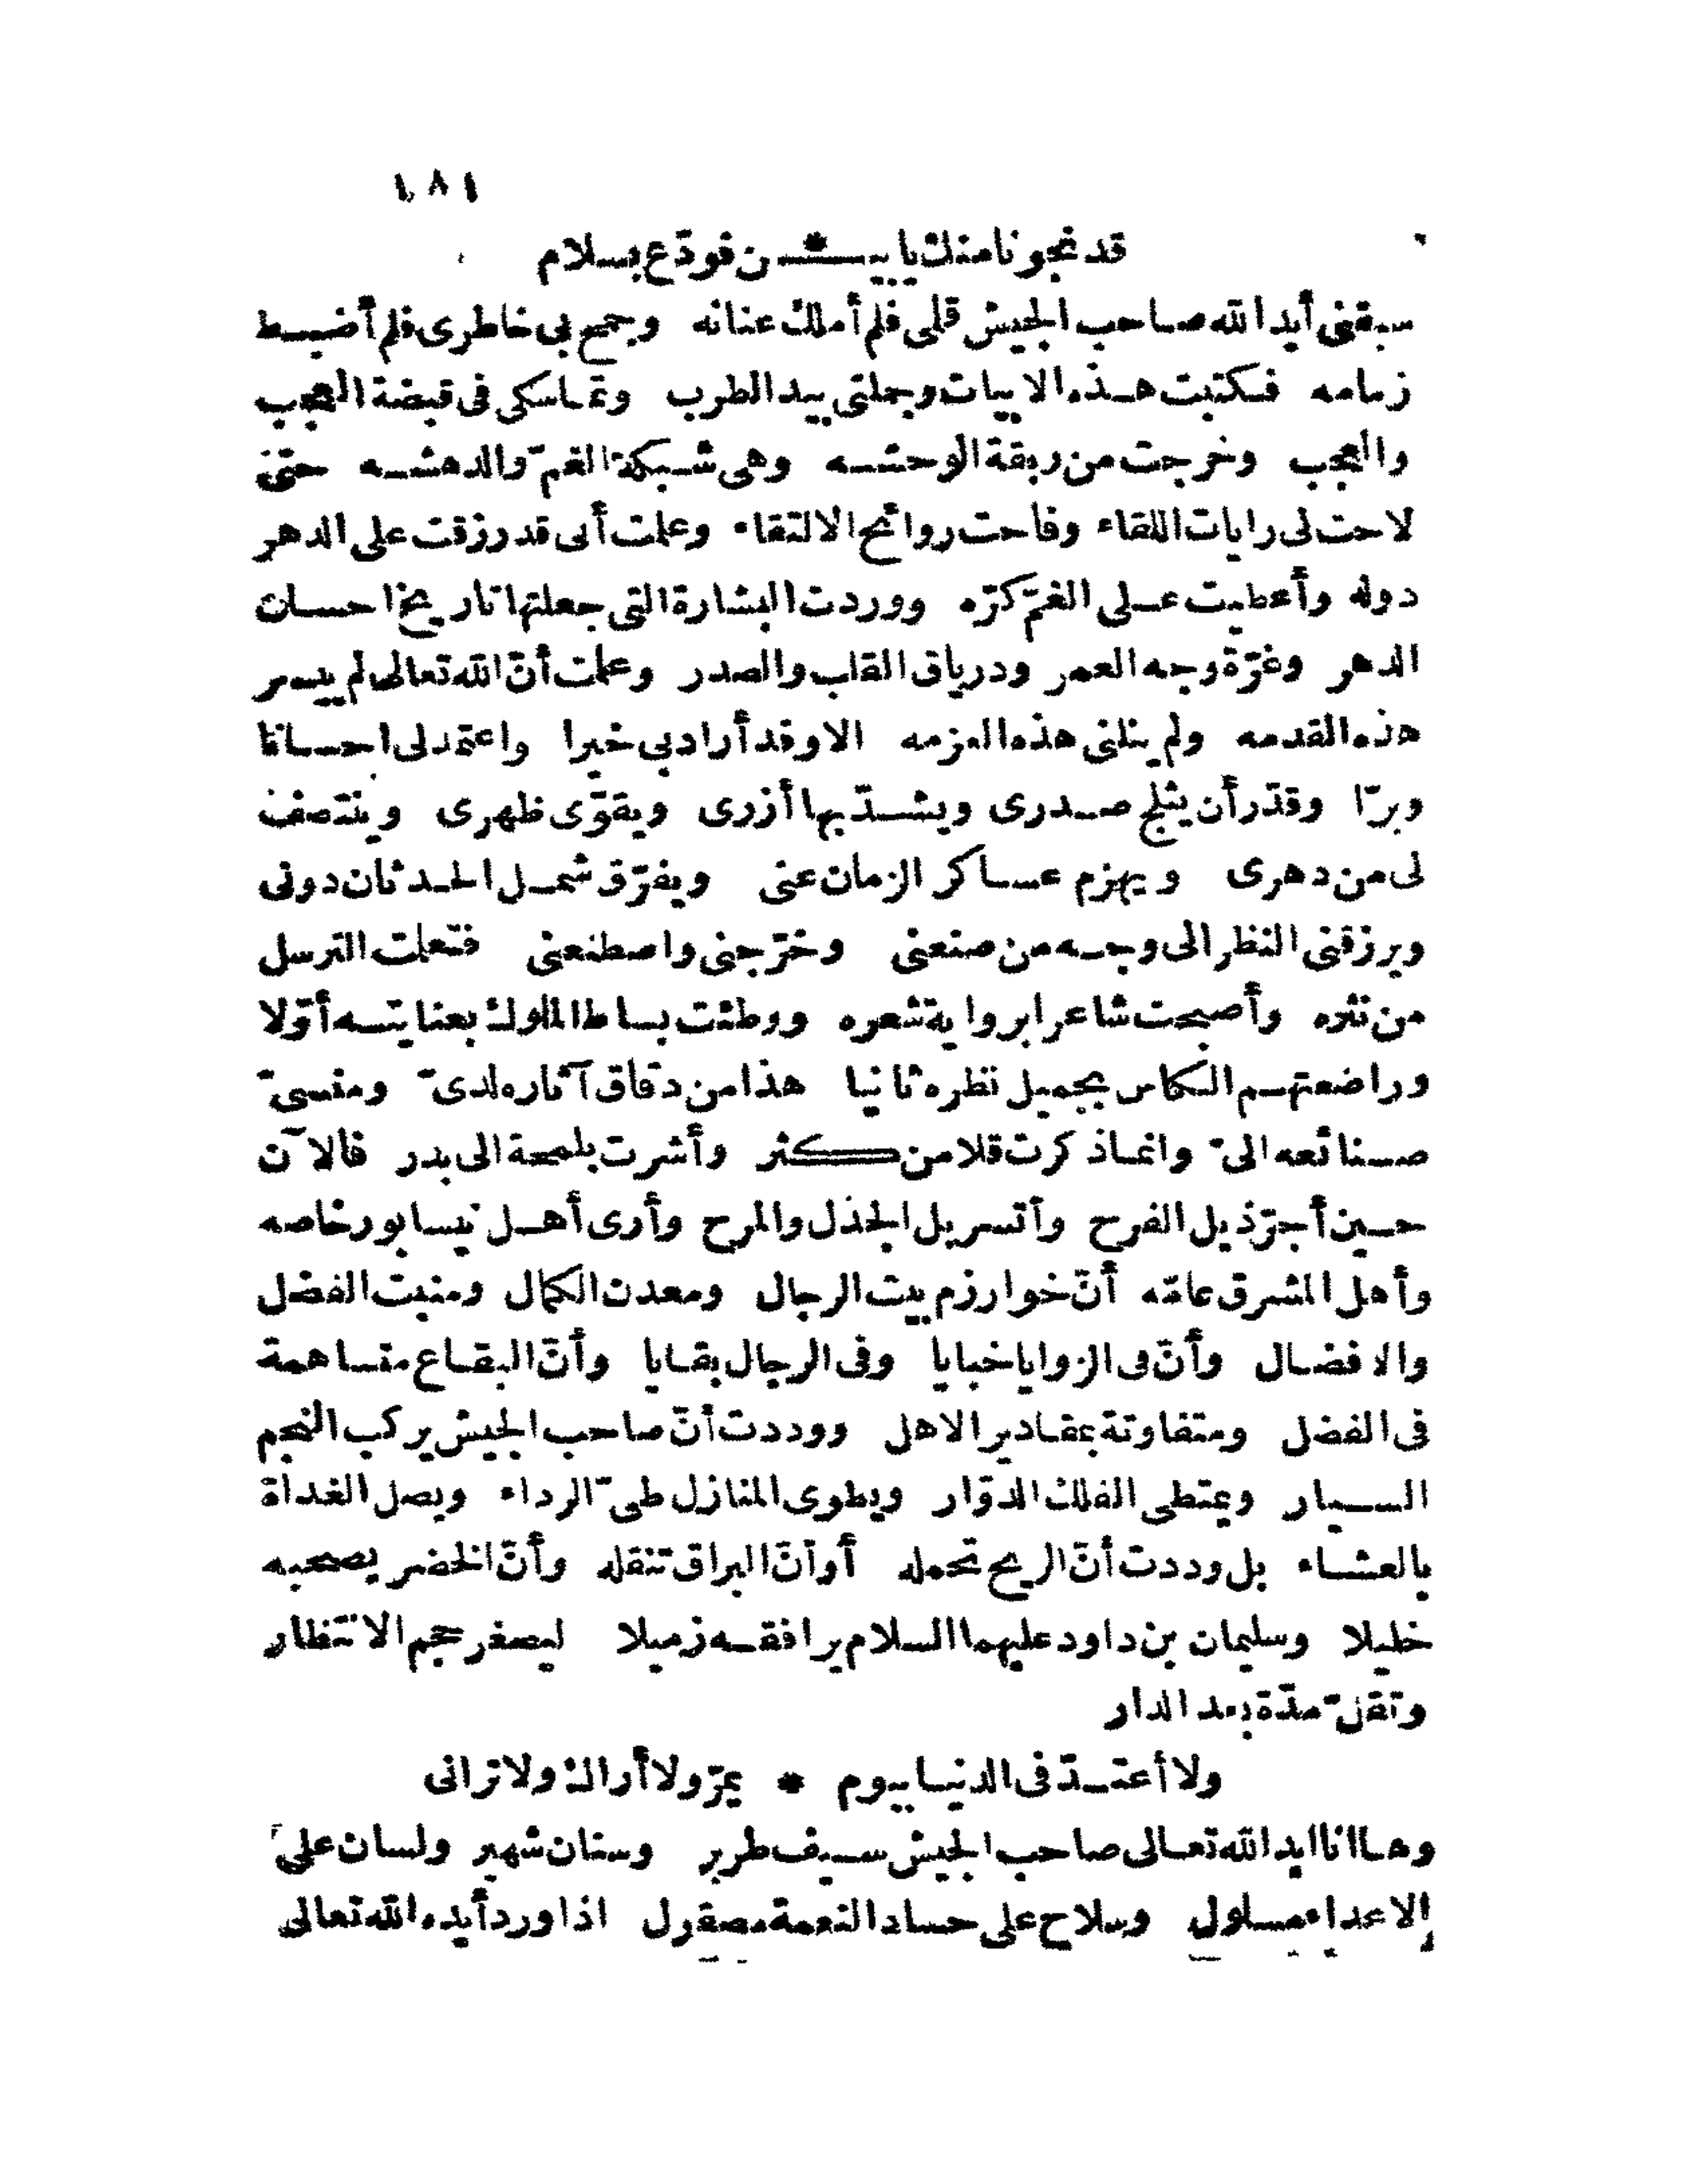 ١٨١
قد نجونا منك يا بيـ * ـن فودّع بسلام
سبقنى أيد الله صاحب الجيش قلمى فلم أملك عنانه وجمح بى خاطرى فلم أضبط
زمامه فكتبت هذه الابيات وجملتى بيد الطرب وتماسكى فى قبضة العجب
والعجب وخرجت من ربقة الوحشه وهى شبكة الغمّ والدهشه حتى
لاحت لى رايات اللقاء وفاحت روائح الالتقاء وعلمت أنى قد رزقت على الدهر
دوله وأعطيت على الغمّ كرّه ووردت البشارة التى جعلتها تاريخ احسان
الدهر وغرّة وجه العمر ودرياق القلب والصدر وعلمت أنّ الله تعالى لم ييسر
هذه القدمه ولم ينلنى هذه العزمه الا وقد أراد بى خيرا واعتمد لى احسانا
وبرّا وقدّر أن يثلج صدرى ويشدّ بها أزرى ويقوّى ظهرى وينتصف
لى من دهرى ويهزم عساكر الزمان عنى ويفرّق شمل الحدثان دونى
ويرزقنى النظر الى وجه من صنعنى وخرّجنى واصطنعنى فتعلمت الترسل
من نثره وأصبحت شاعرا برواية شعره ووطئت بساط الملوك بعنايته أوّلا
وراضعتهم الكاس بجميل نظره ثانيا هذا من دقاق آثاره لدىّ ومنسىّ
صنائعه الىّ وانما ذكرت قلا من كثر وأشرت بلمحة الى بدر فالآن
حين أجرّ ذيل الفرح وأتسربل الجذل والمرح وأرى أهل نيسابور خاصه
وأهل المشرق عامّه أنّ خوارزم بيت الرجال ومعدن الكمال ومنبت الفضل
والافضال وأنّ فى الزوايا خبايا وفى الرجال بقايا وأنّ البقاع متساهمة
فى الفضل ومتفاوتة بمقادير الاهل ووددت أنّ صاحب الجيش يركب النجم
السيار ويمتطى الفلك الدوّار ويطوى المنازل طىّ الرداء ويصل الغداة
بالعشاء بل وددت أنّ الريح تحمله أو أنّ البراق تنقله وأنّ الخضر يصحبه
خليلا وسليمان بن داود عليهما السلام يرافقه زميلا ليصغر حجم الانتظار
وتقلّ مدّة بعد الدار
ولا أعتدّ فى الدنيا بيوم * يمرّ ولا أراك ولا ترانى
وها انا ايد الله تعالى صاحب الجيش سيف طرير وسنان شهير ولسان على
الاعداء مسلول وسلاح على حساد النعمة مصقول اذا ورد أيده الله تعالى